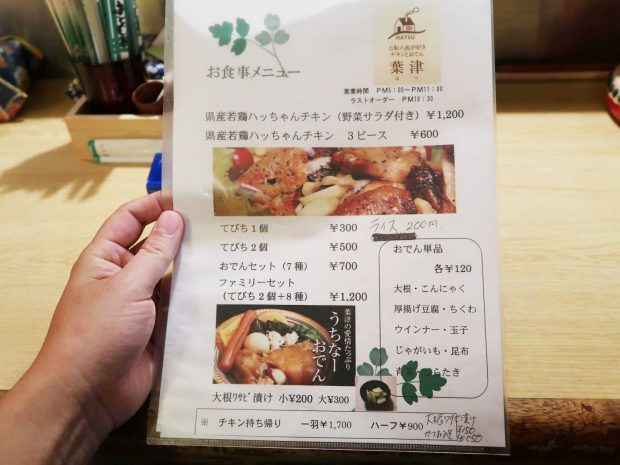 お食事メニュー
HATSU
七転八起が好き
チキンとおでん
葉津
はつ
営業時間 PM5:00～PM11:00
ラストオーダー PM10:30
県産若鶏ハッちゃんチキン（野菜サラダ付き）￥1,200
県産若鶏ハッちゃんチキン 3ピース ￥600
てびち1個 ￥300
ライス 200円
てびち2個 ￥500
おでんセット（7種）￥700
ファミリーセット
（てびち2個＋8種）￥1,200
おでん単品
各￥120
大根・こんにゃく
厚揚げ豆腐・ちくわ
ウインナー・玉子
じゃがいも・昆布
らたき
葉津の愛情たっぷり
うちなー
おでん
大根ﾜｻﾋﾞ漬け 小￥200 大￥300
※ チキン持ち帰り 一羽￥1,700 ハーフ￥900